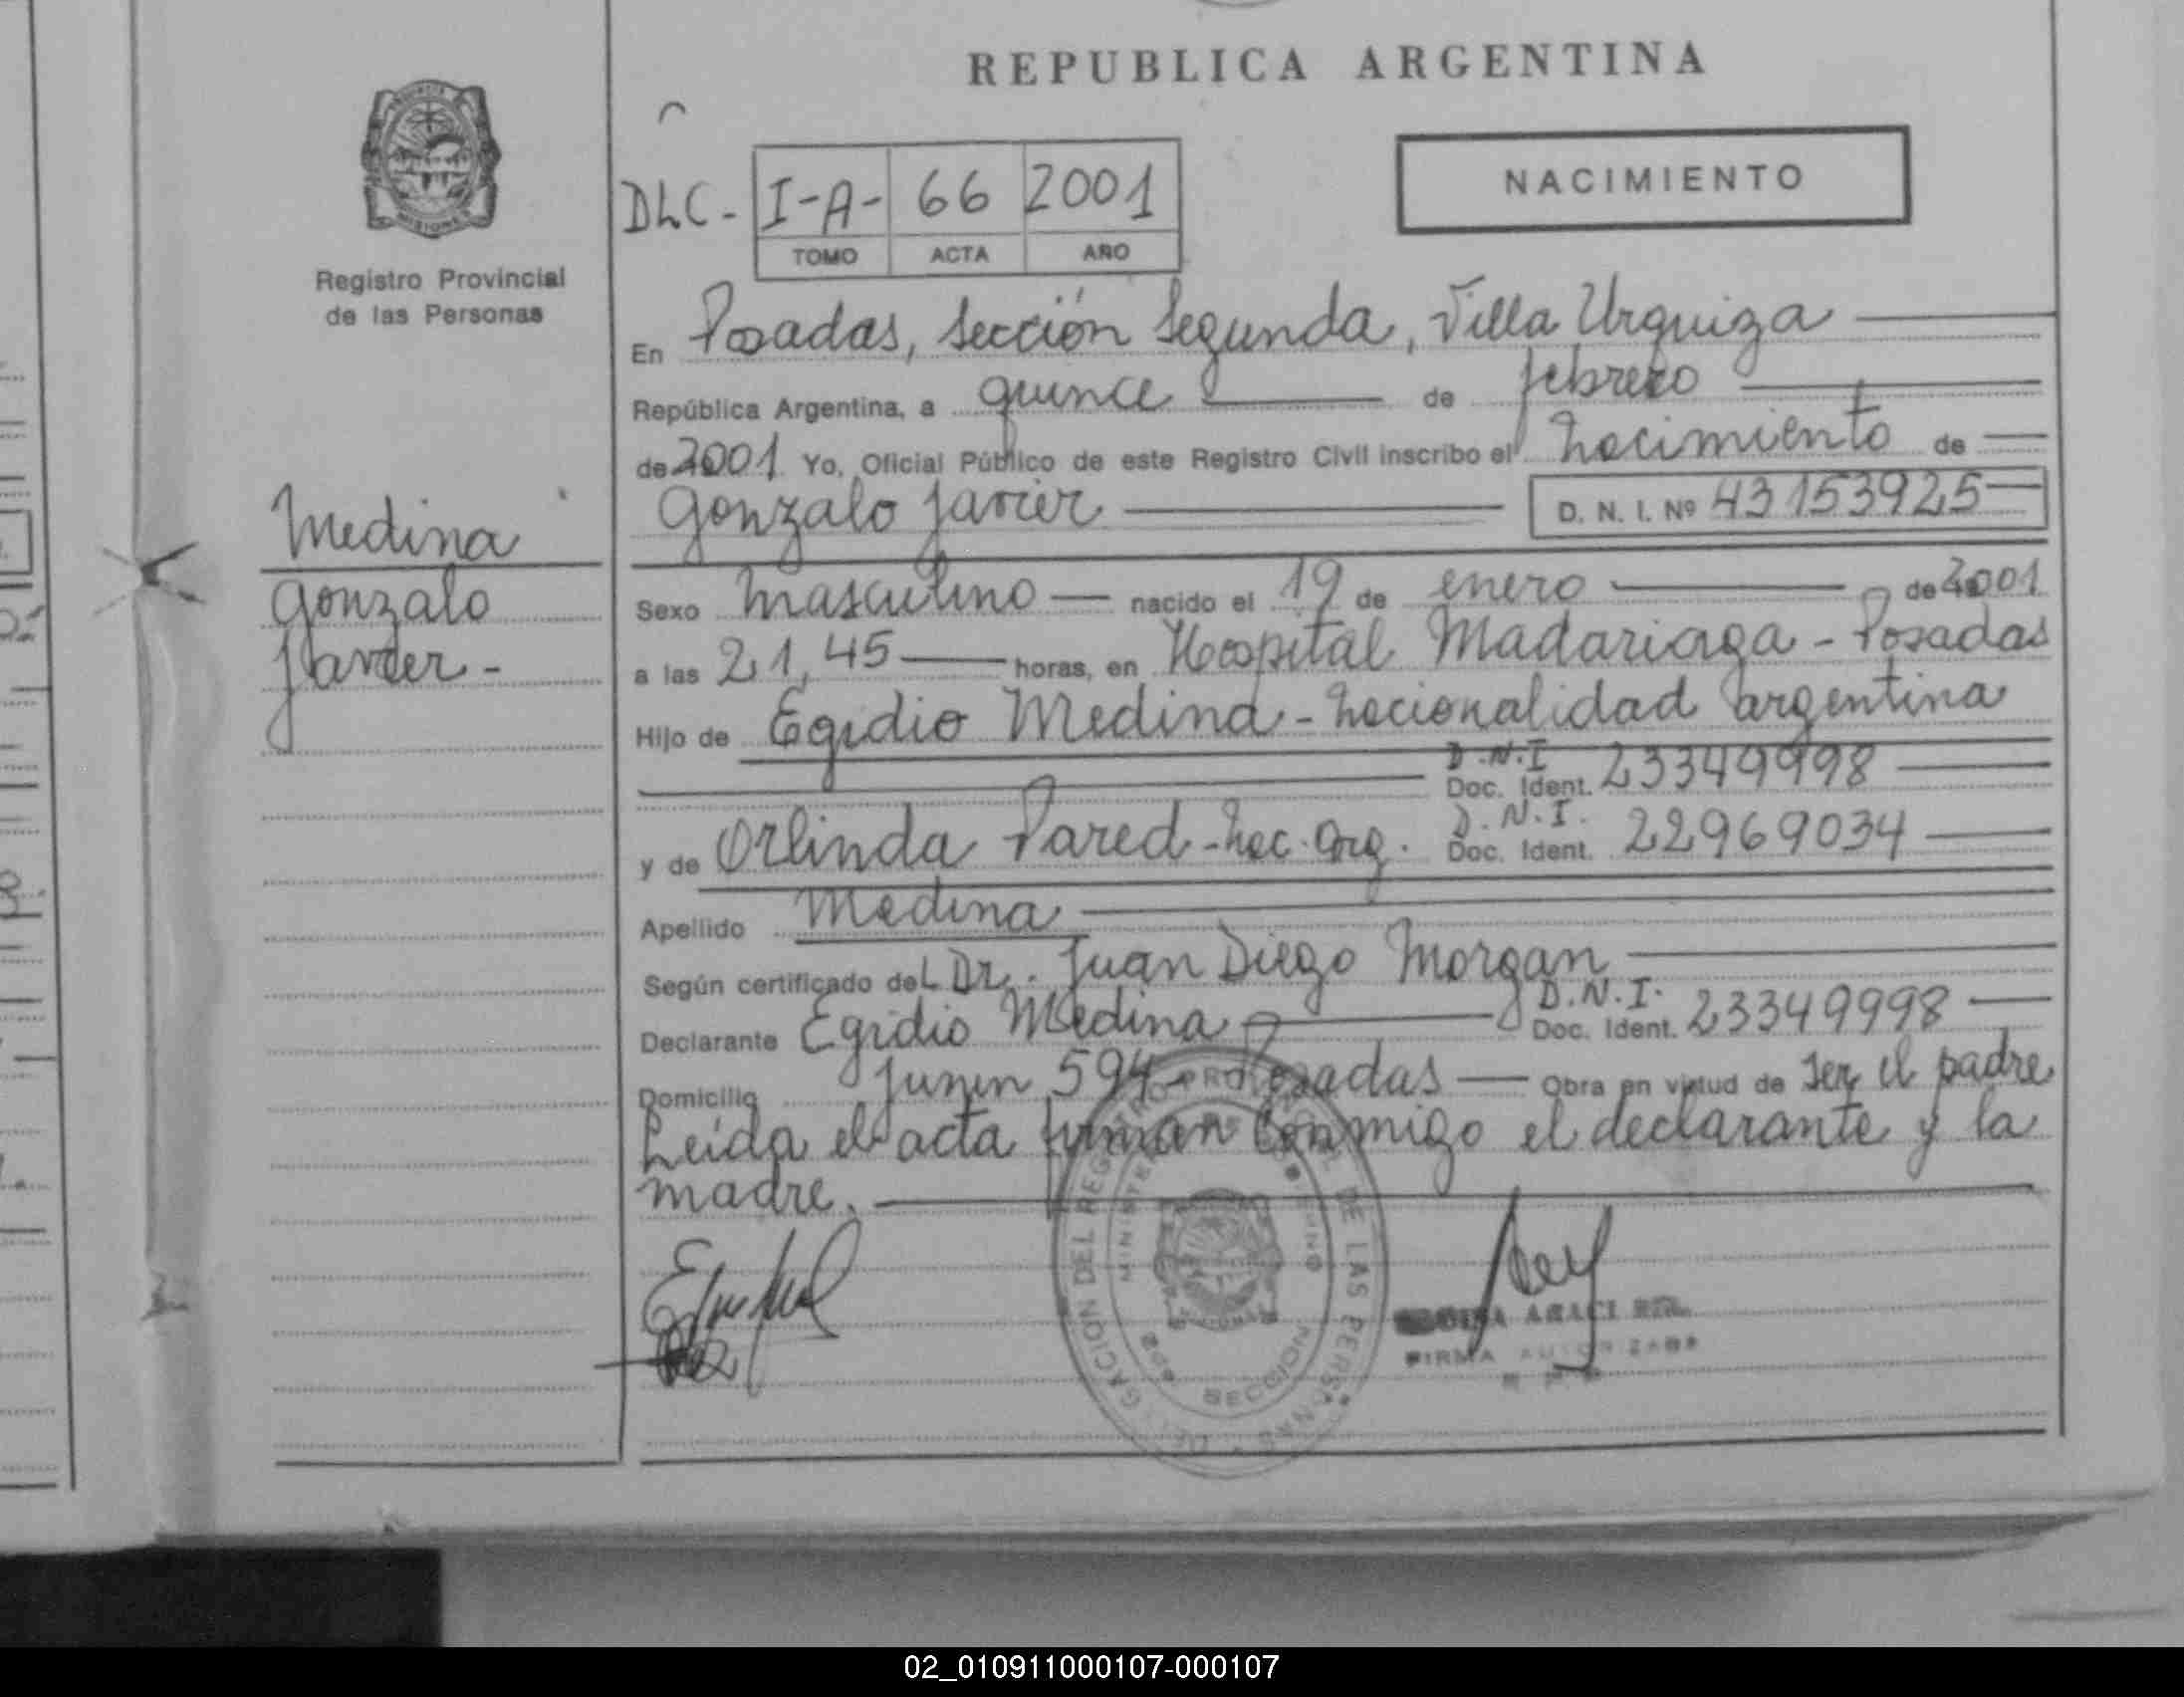 REPUBLICA ARGENTINA
NACIMIENTO
DLC - I-A- 66 2001
TOMO ACTA AÑO
Registro Provincial
de las Personas
Medina
Gonzalo
Javier -
En Posadas, Sección Segunda, Villa Urquiza
República Argentina, a quince de febrero
de 2001 Yo, Oficial Público de este Registro Civil inscribo el nacimiento de
Gonzalo Javier D. N. I. Nº 43153925
Sexo masculino nacido el 19 de enero de 2001
a las 21,45 horas, en Hospital Madariaga - Posadas
Hijo de Egidio Medina - nacionalidad argentina
D.N.I
Doc. Ident. 23349998
D.N.I.
y de Orlinda Pared - nac. arg. Doc. Ident. 22969034
Apellido Medina
Según certificado del Dr. Juan Diego Morgan
D.N.I.
Declarante Egidio Medina Doc. Ident. 23349998
Domicilio Junin 594 - Posadas Obra en virtud de ser el padre
Leida el acta firman conmigo el declarante y la
madre.
DEL REGISTRO PROVINCIAL DE LAS PERSONAS
SECCION
FIRMA AUTORIZADA
02_010911000107-000107